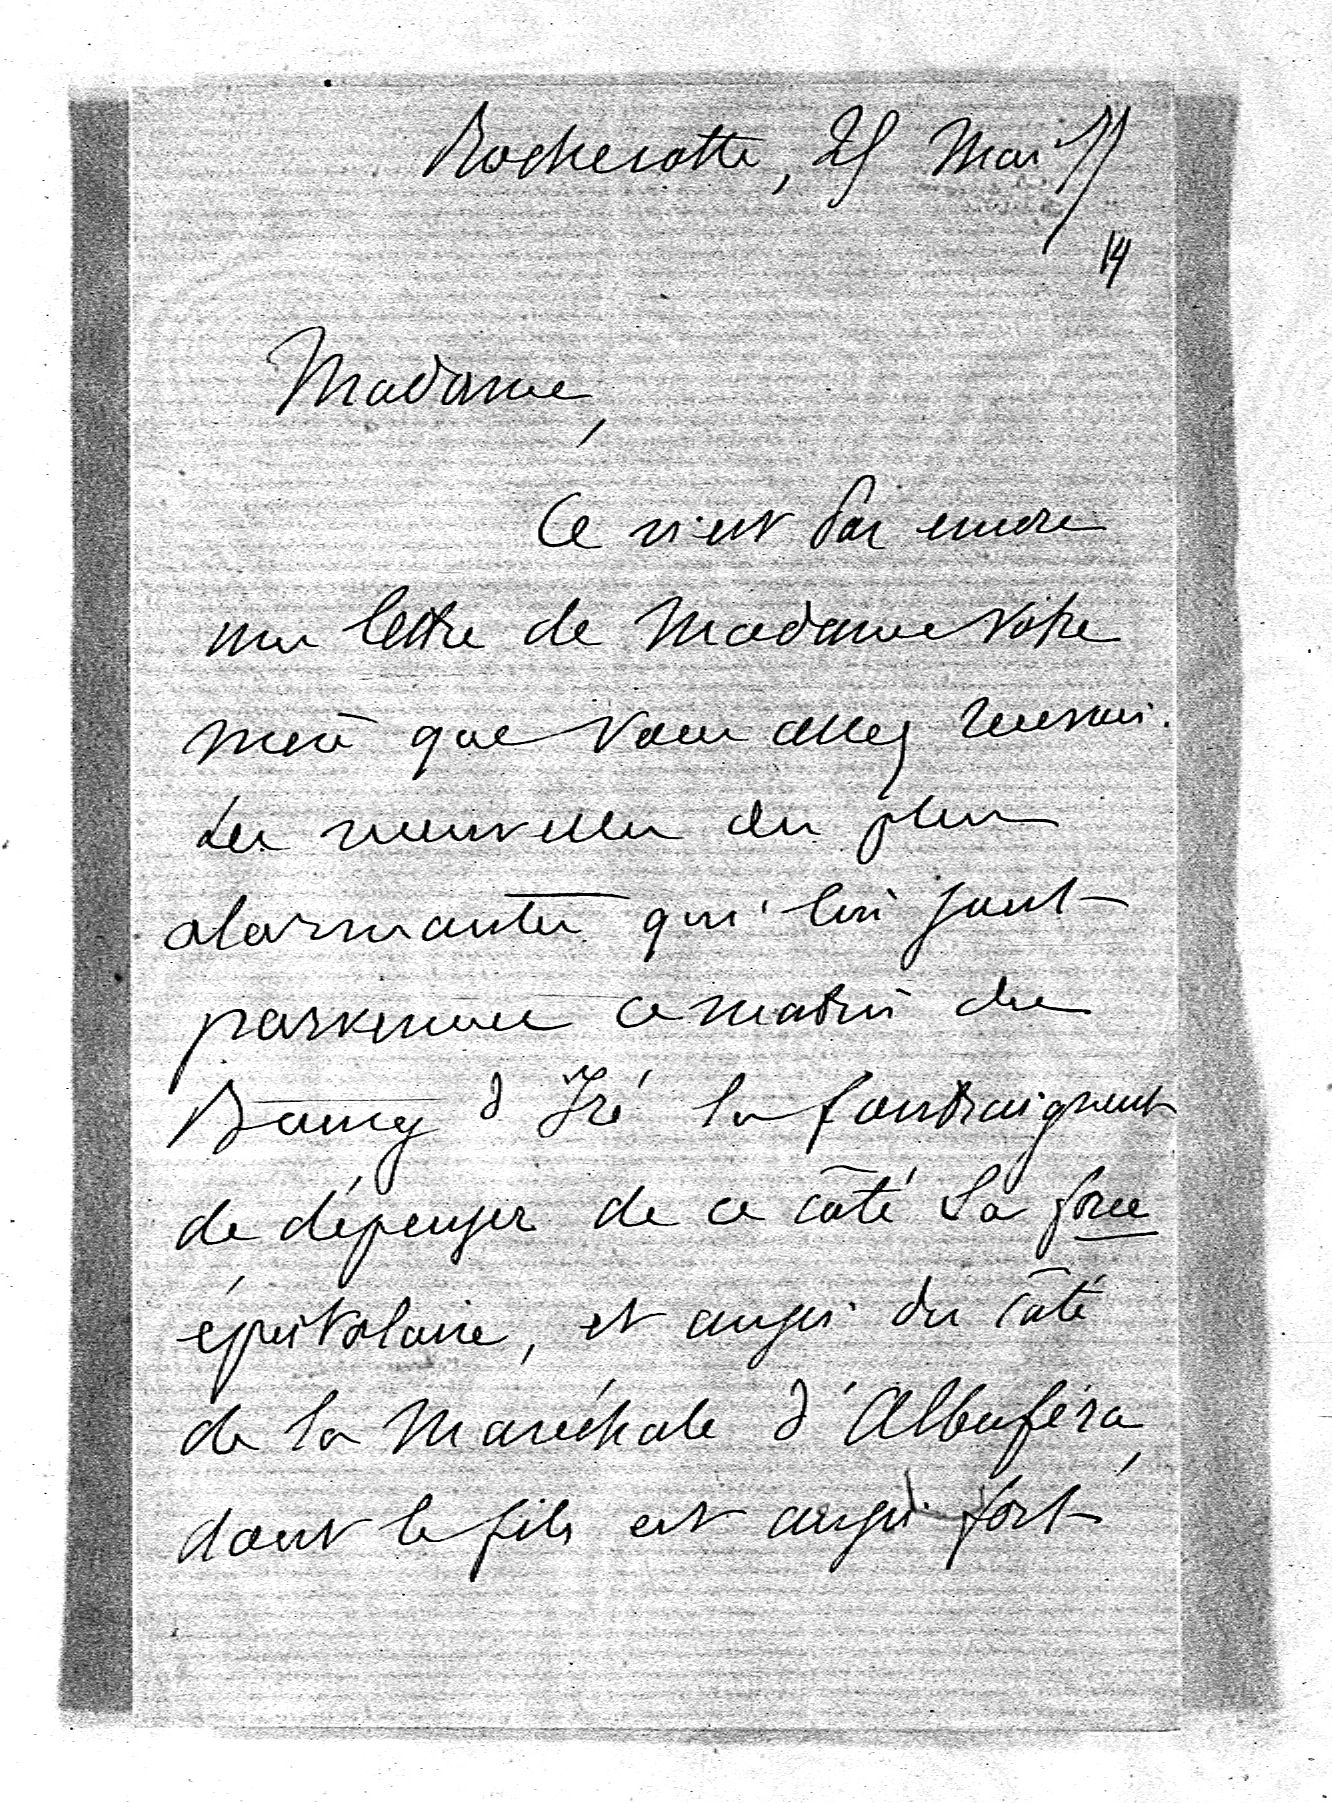 Rochecotte, 25 Mars 77
14
Madame,
Ce n'est pas encore
une lettre de Madame votre
mère que vous allez recevoir.
Les nouvelles des plus
alarmantes qui lui sont
parvenues ce matin du
Bourg d'Iré la contraignent
de dépenser de ce côté sa force
épistolaire, et aussi du côté
de la Maréchale d'Albuféra,
dont le fils est aussi fort